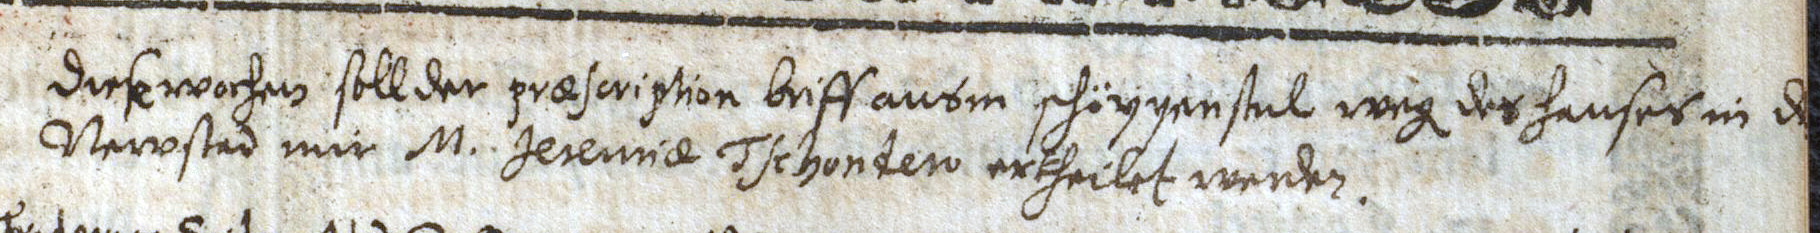 diese wochen soll der præscription briff ausm schöppenstul weg des hauses in d
Newstad mir M. Jeremiæ Tschontero ertheilet werden.